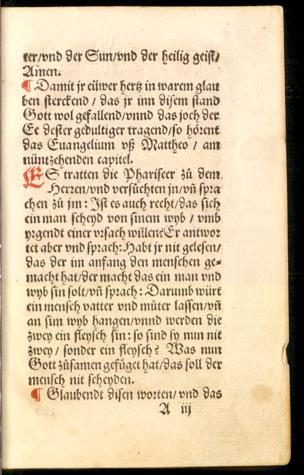 ter/vnd der Sun/vnd der heilig geist/
Amen.
¶ Damit jr eüwer hertz in warem glau
ben sterckend / das jr inn disem stand
Gott wol gefallend/vnnd das joch der
Ee dester gedultiger tragend/so hörent
das Euangelium vß Mattheo / am
nüntzehenden capitel.
ES tratten die Phariseer zů dem
Herren/vnd versůchten jn/vñ spra
chen zů jm: Ist es auch recht/das sich
ein man scheyd von sinem wyb / vmb
yrgendt einer vrsach willen? Er antwor
tet aber vnd sprach: Habt jr nit gelesen/
das der im anfang den menschen ge⸗
macht hat/der macht das ein man vnd
wyb sin solt/vñ sprach: Darumb würt
ein mensch vatter vnd můter lassen/vñ
an sim wyb hangen/vnnd werden die
zwey ein fleysch sin: so sind sy nun nit
zwey / sonder ein fleysch? Was nun
Gott zůsamen gefüget hat/das soll der
mensch nit scheyden.
¶ Glaubendt disen worten/vnd das
A iij